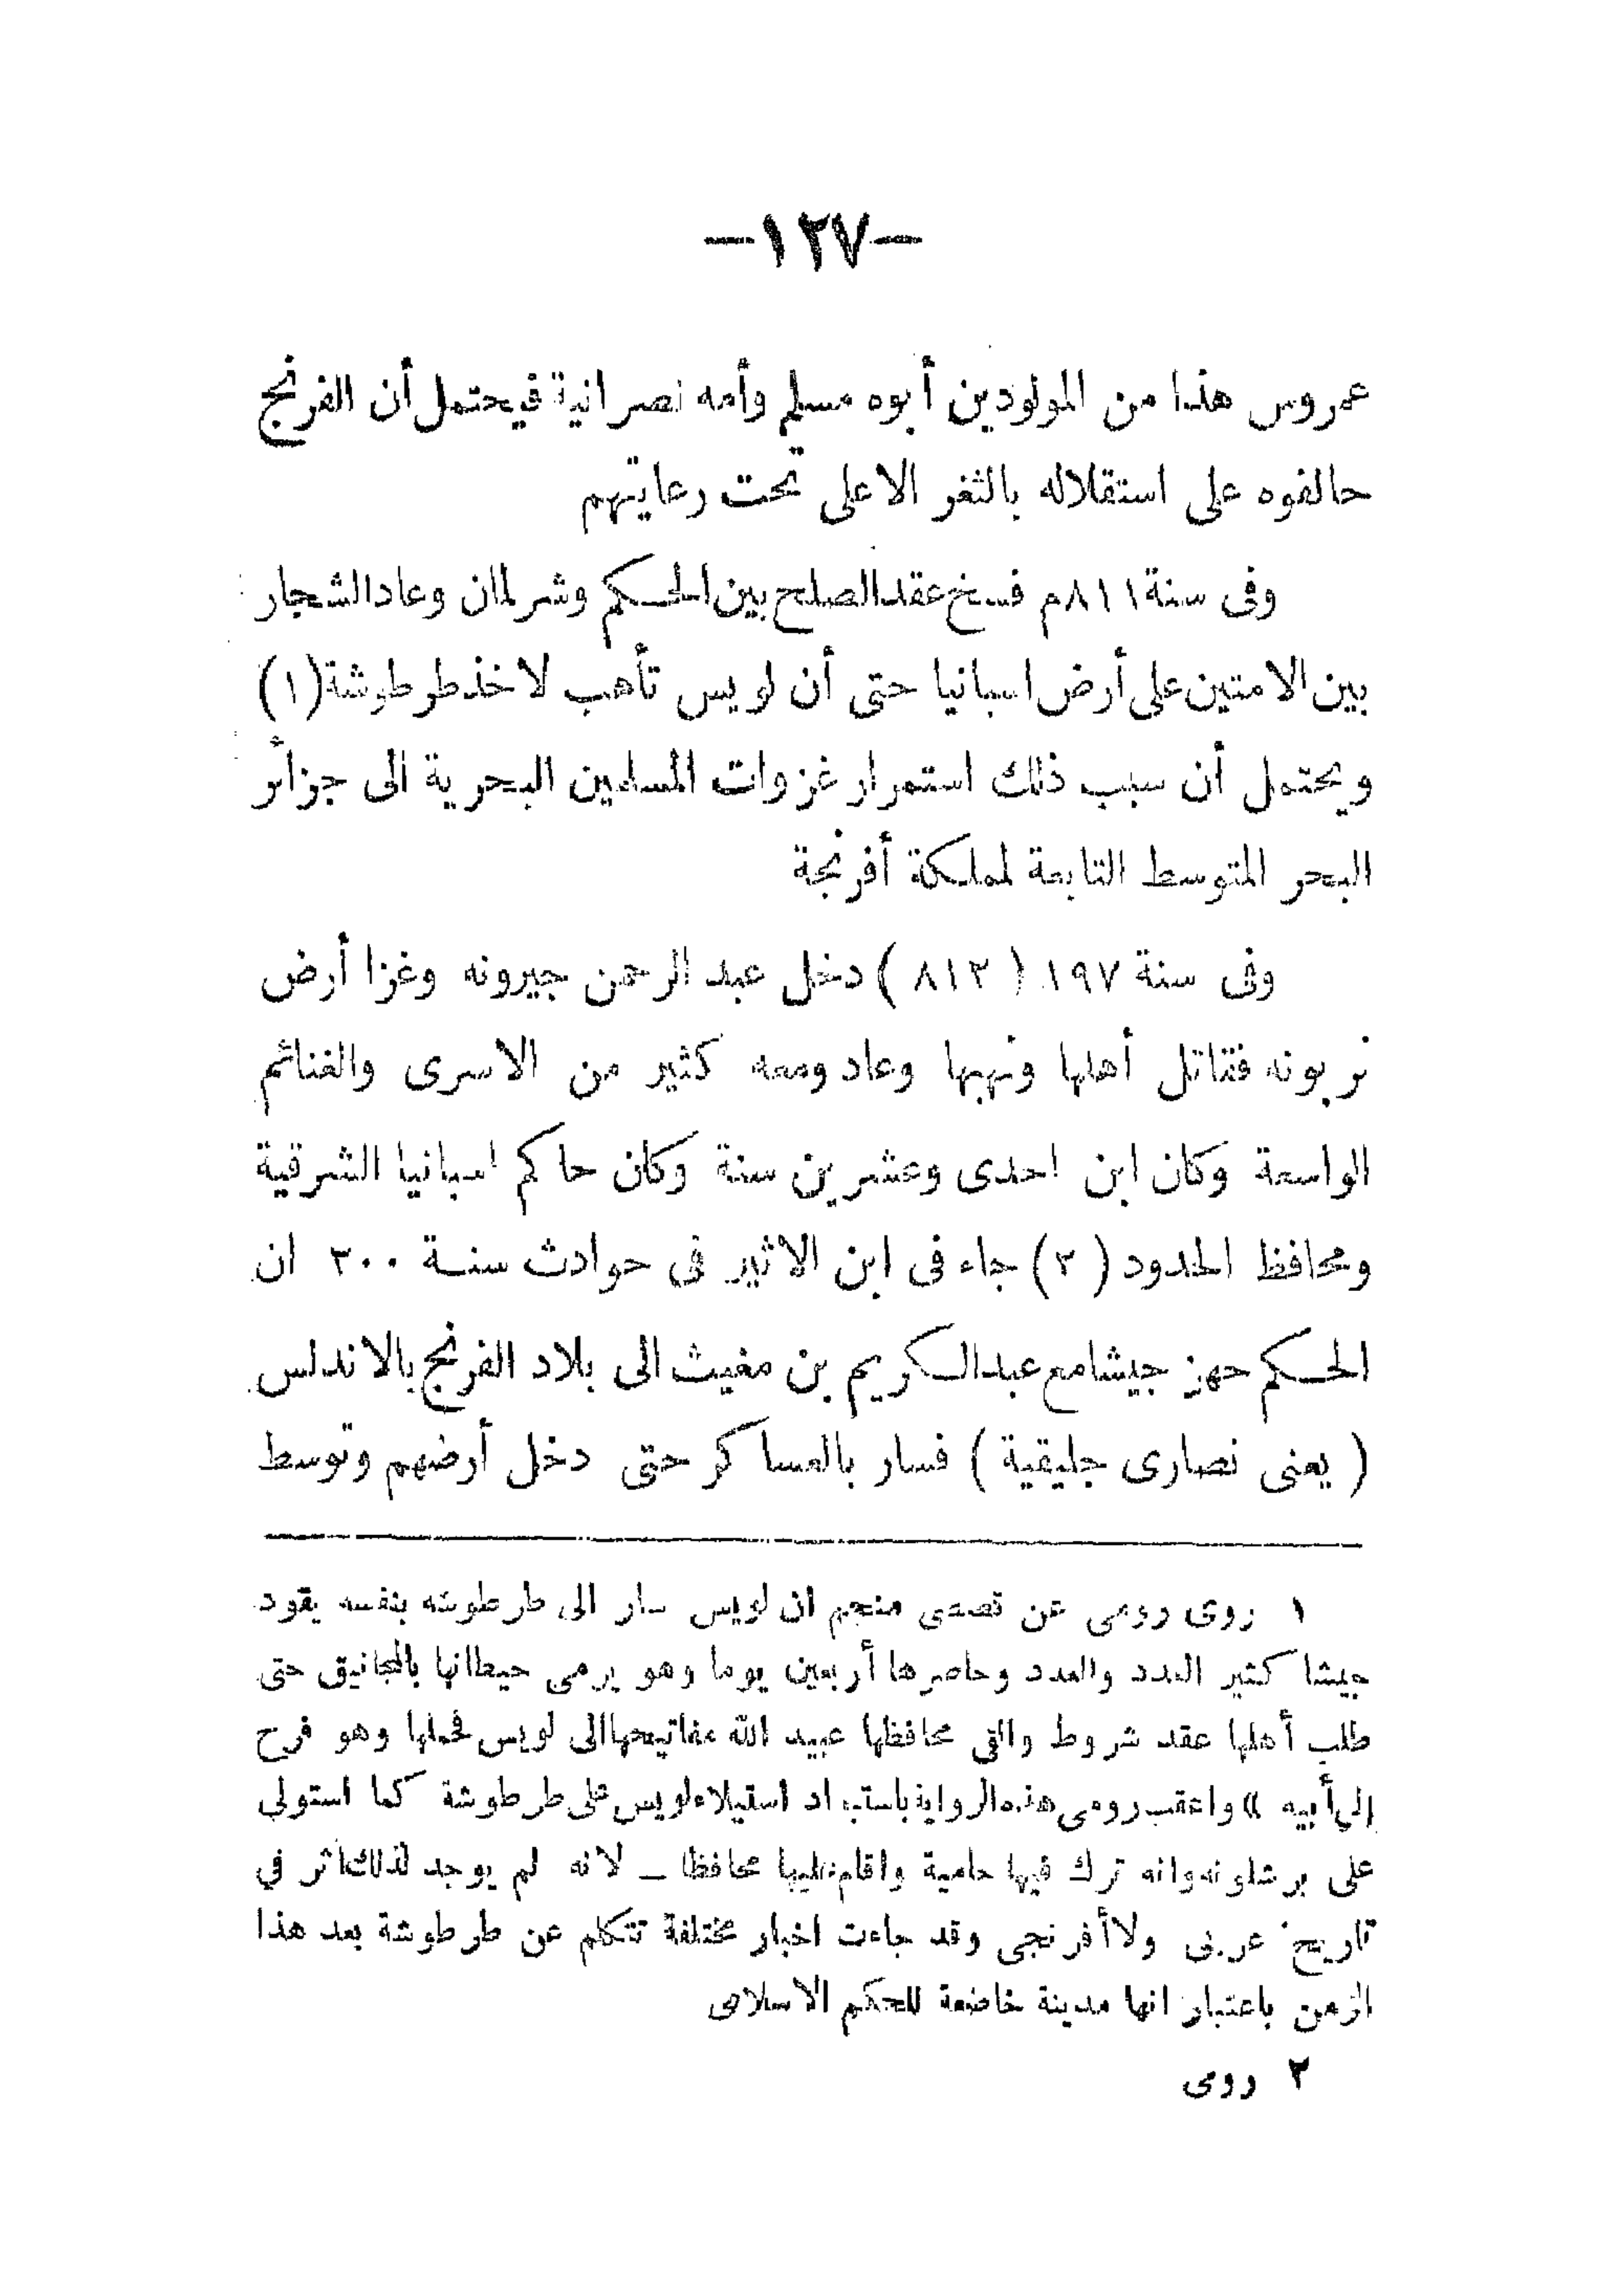 —١٢٧—
عمروس هذا من المولودين أبوه مسلم وأمه نصرانية فيحتمل أن الفرنج
حالفوه على استقلاله بالثغر الاعلى تحت رعايتهم
وفى سنة ٨١١م فسخ عقد الصلح بين الحكم وشرلمان وعاد الشجار
بين الامتين على أرض اسبانيا حتى أن لويس تأهب لاخذ طرطوشة (١)
ويحتمل أن سبب ذلك استمرار غزوات المسلمين البحرية الى جزائر
البحر المتوسط التابعة لمملكة أفرنجة
وفى سنة ١٩٧ ( ٨١٣ ) دخل عبد الرحمن جيرونه وغزا أرض
نربونه فقاتل أهلها ونهبها وعاد ومعه كثير من الاسرى والغنائم
الواسعة وكان ابن احدى وعشرين سنة وكان حاكم اسبانيا الشرقية
ومحافظ الحدود (٢) جاء فى ابن الاثير فى حوادث سنة ٢٠٠ ان
الحكم جهز جيشا مع عبد الكريم بن مغيث الى بلاد الفرنج بالاندلس
( يعنى نصارى جليقية ) فسار بالعساكر حتى دخل أرضهم وتوسط
١ روى رومى عن قصصى منجم ان لويس سار الى طرطوشه بنفسه يقود
جيشا كثير العدد والعدد وحاصرها أربعين يوما وهو يرمى حيطانها بالمجانيق حتى
طلب أهلها عقد شروط والقى محافظها عبيد الله مفاتيحها الى لويس فحملها وهو فرح
إلى أبيه » واعقب رومى هذه الرواية باستبعاد استيلاء لويس على طرطوشة كما استولى
على برشلونه وانه ترك فيها حامية واقام عليها محافظا – لانه لم يوجد لذلك أثر في
تاريخ عربى ولا أفرنجى وقد جاءت اخبار مختلفة تتكلم عن طرطوشة بعد هذا
الزمن باعتبار انها مدينة خاضعة للحكم الاسلامى
٢ رومى